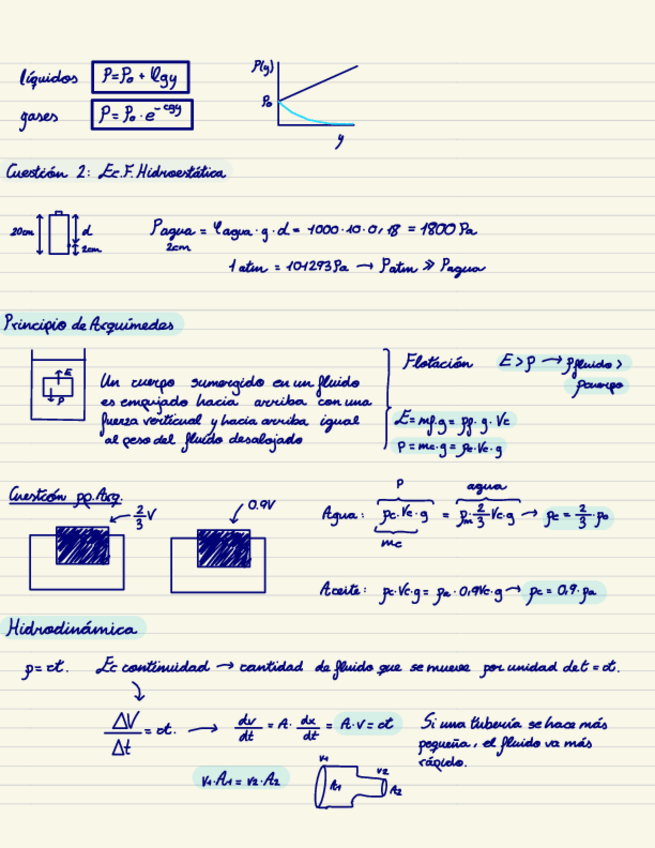 líquidos P=P₀ + ρgy
gases P = P₀ · e^-cgy
P(y)
P₀
y
Cuestión 2: Ec. F. Hidroestática
20cm d 2cm
Pagua = ρagua · g · d = 1000 · 10 · 0,18 = 1800 Pa
2cm
1 atm = 101293 Pa → Patm ≫ Pagua
Principio de Arquímedes
E
P
Un cuerpo sumergido en un fluido
es empujado hacia arriba con una
fuerza verticual y hacia arriba igual
al peso del fluido desalojado
Flotación E > p → ρfluido >
ρcuerpo
E = mf·g = ρf · g · Vc
P = mc·g = ρc·Vc·g
Cuestión pp. Arq.
2/3 V
0.9V
P agua
Agua: ρc·Vc·g = ρm · 2/3 Vc·g → ρc = 2/3 · ρ₀
mc
Aceite: ρc·Vc·g = ρa · 0,9Vc·g → ρc = 0,9·ρa
Hidrodinámica
ρ = ct. Ec continuidad → cantidad de fluido que se mueve por unidad de t = ct.
ΔV/Δt = ct. → dv/dt = A · dx/dt = A·v = ct
Si una tubería se hace más
pequeña, el fluido va más
rápido.
v₁·A₁ = v₂·A₂
v₁ A₁ v₂ A₂